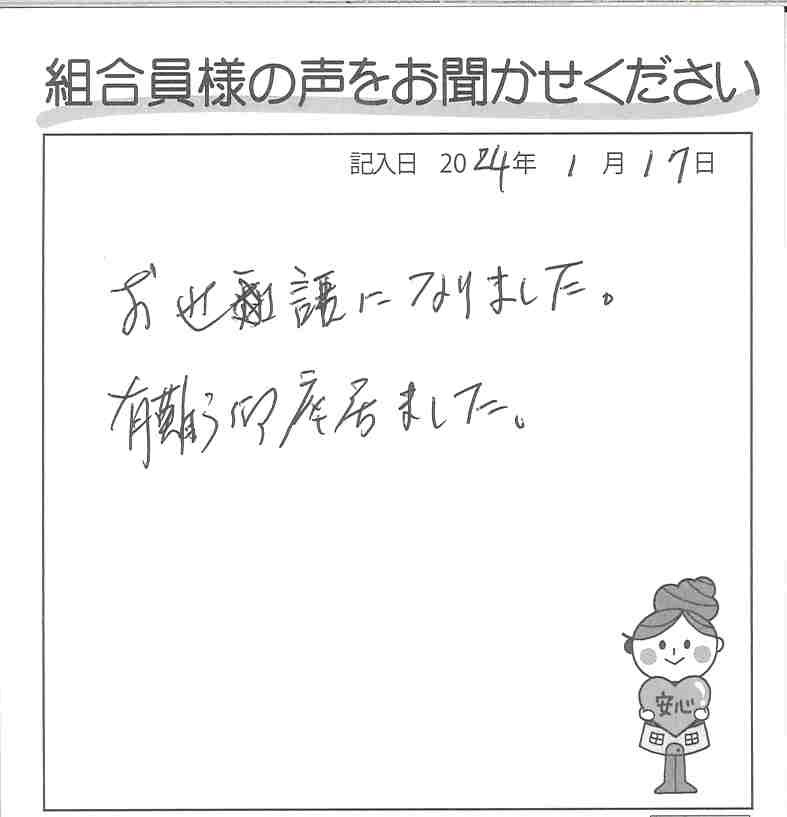 組合員様の声をお聞かせください
記入日 2024年 1月17日
お世話になりました。
有難う御座居ました。
安心